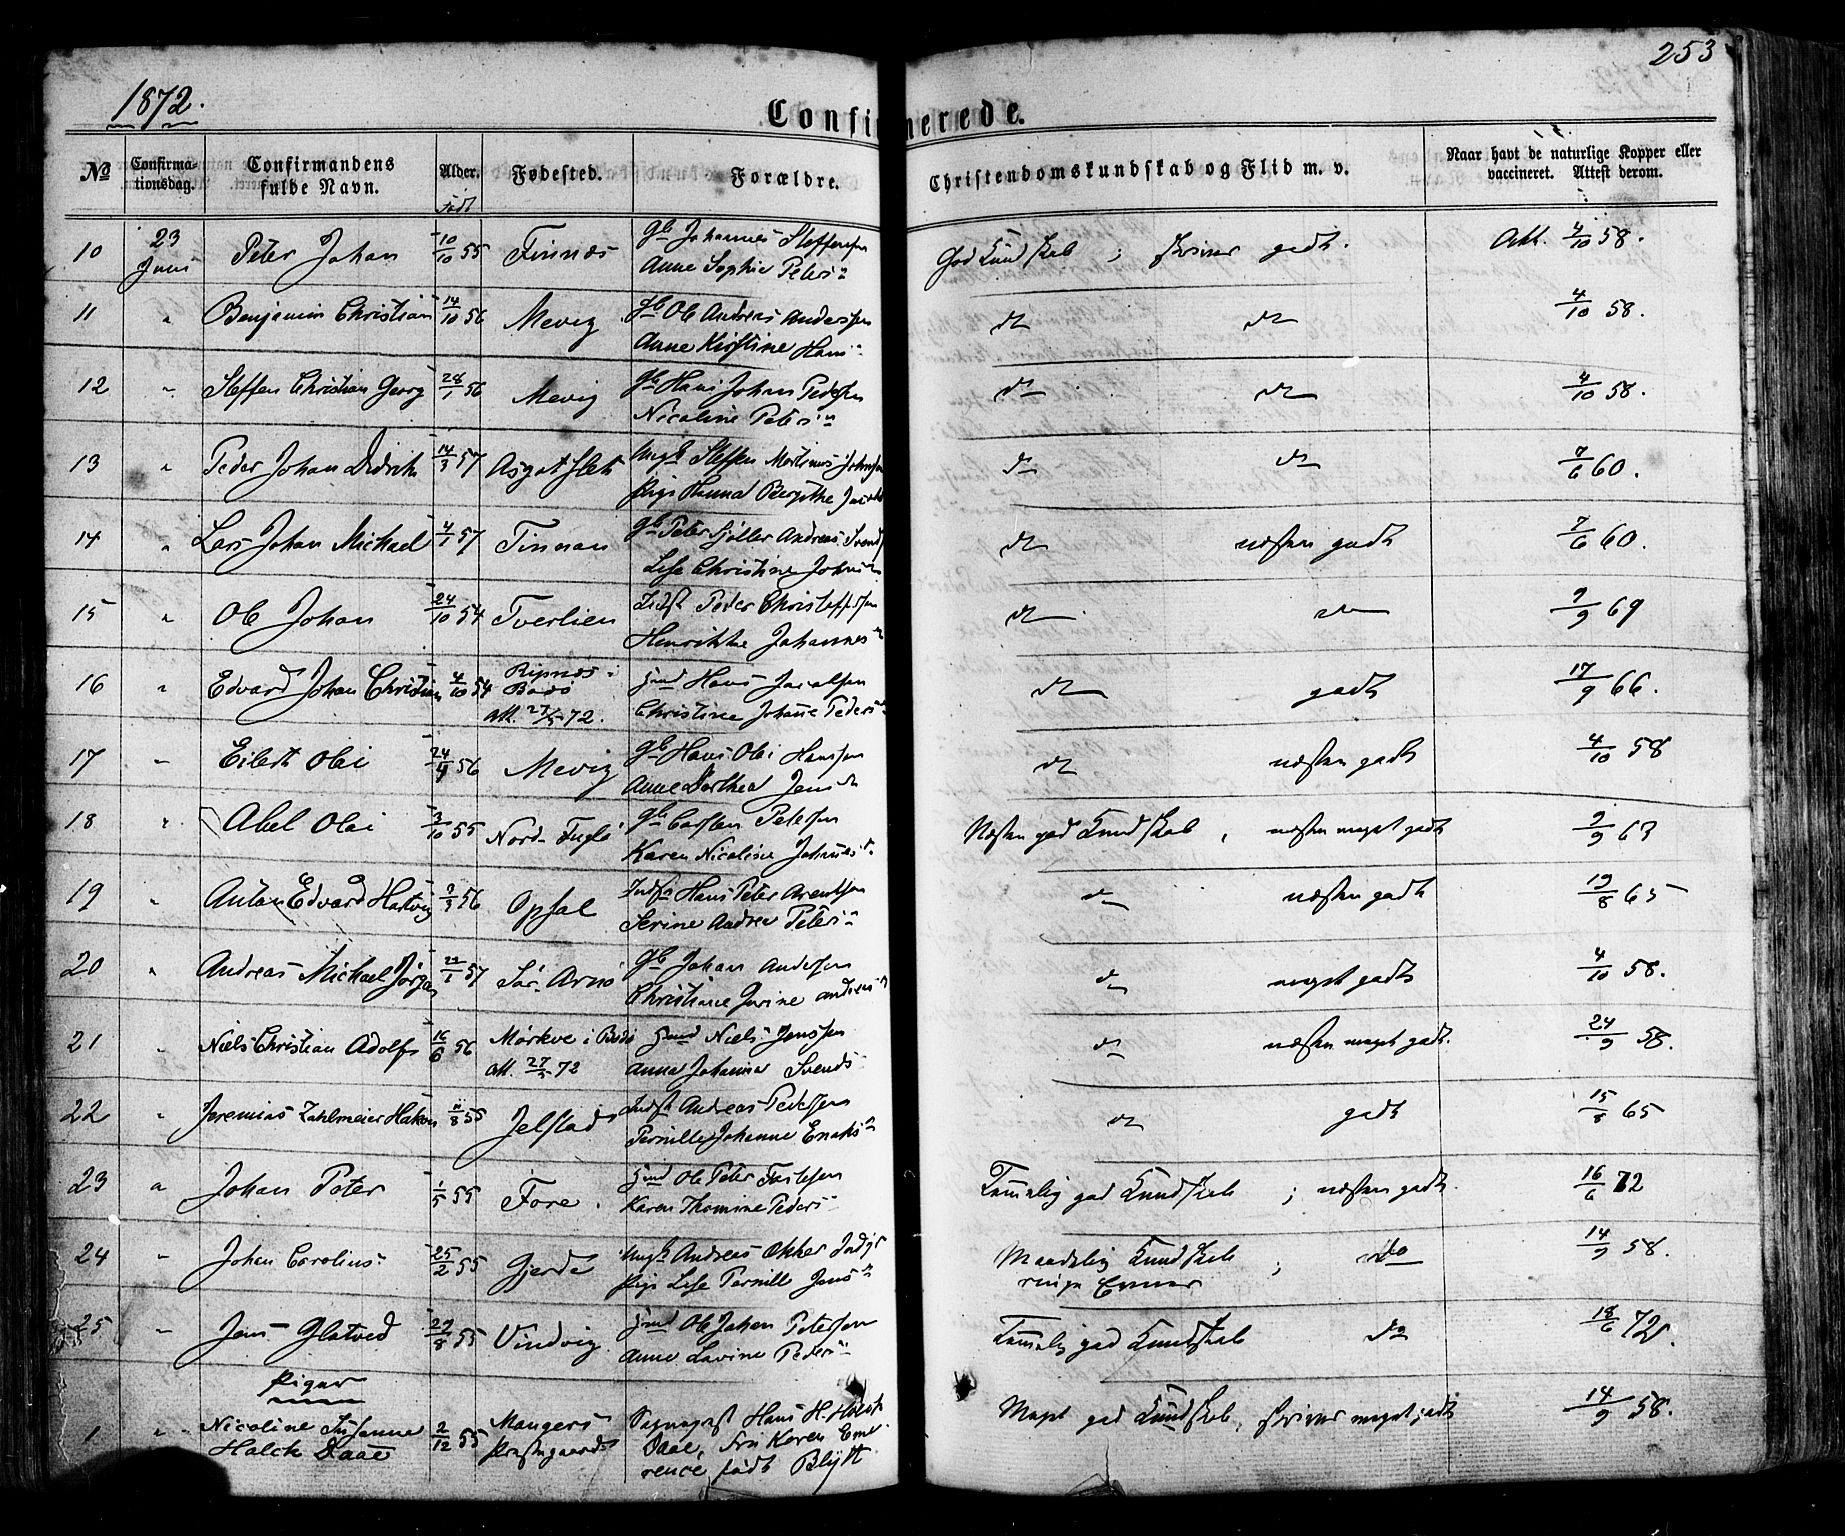 253
1872.
Confirmerede.
No
Confirmationsdag.
Confirmandens fulde Navn.
Alder.
Fødested.
Forældre.
Christendomskundskab og Flid m. v.
Naar havt de naturlige Kopper eller vaccineret. Attest derom.
født
10 23 Juni Peter Johan 10/10 55 Finnæs Gb Johannes Steffensen
Anne Sophie Peters
God Kundskab ; skriver godt. Att. 4/10 58.
11 " Benjamin Christian 14/10 56 Mevig Gb Ole Andreas Anderssen
Anne Kirstine Hans
do do 4/10 58.
12 " Steffen Christian Georg 28/1 56 Mevig Gb Hans Johan Pedersen
Nicoline Peters
do do 4/10 58.
13 " Peder Johan Didrik 14/3 57 Ungk Steffen Martinus
Pige Hanna Bergithe
do do 7/6 60.
14 " Lars Johan Michael 4/1 57 Finnan Gb Peter Andreas
Lise Christine Johns
do næsten godt 7/6 60.
15 " Ole Johan 24/10 54 Tverlien Inds Peder Christoffersen
Henrikke Johannes
do do 9/9 69
16 " Edvard Johan Christian 4/10 54 Ripnæs i
Bodø
Att. 27/5 72. Gmd Hans Jacobsen
Christine Johanne Peders
do godt 17/9 66.
17 " Eilert Olai 24/4 56 Mevig Gb Hans Olai Hanssen
Anne Dorthea Jens
do næsten godt 4/10 58
18 " Abel Olai 3/10 55 Nord-Fuglø Gb Carsten Petersen
Karen Nicoline Johns
Næsten god Kundskab, næsten meget godt 9/9 63
19 " Anton Edvard Hartvig 3/3 56 Opsal Inds Hans Peter Arentsen
Serine Andrea Peters
do næsten godt 19/8 65
20 " Andreas Michael Jørgen 22/1 57 Sør-Arnø Gb Johan Andersen
Christiane Andreas
do meget godt 4/10 58.
21 " Niels Christian Adolf 16/6 56 Mørkve i Bodø
Att. 27/5 72 Gmd Niels Jenssen
Anna Johanna Svends
do næsten meget godt. 24/9 58.
22 " Jeremias Zahlmeier Hakon 11/8 55 Jelstad Inds Andreas Pedersen
Pernille Johanne Enoks
do godt 15/8 65
23 " Johan Peter 1/5 55 Fore. Gmd Ole Peter
Karen Thomine Peders
Temmelig god Kundskab ; næsten godt. 16/6 72
24 " Johan Carolius 25/2 55 Gjerde Ungk Andreas Okker
Pige Lise Pernille Jens
Maadelig Kundskab ; do 14/9 58.
ringe Evner
25 " Jens Glatved 29/8 55 Vindvig Gmd Ole Johan Petersen
Anne Lavine Peders
Temmelig god Kundskab do 18/6 72.
Piger
1 " Nicoline Susanne
Holck Daae 2/12 55 Mangers
Præstegaard Sogneprest Hans H. Holck
Daae, Fru Karen Eme
rence født Blytt
Meget god Kundskab, skriver meget godt 14/9 58.